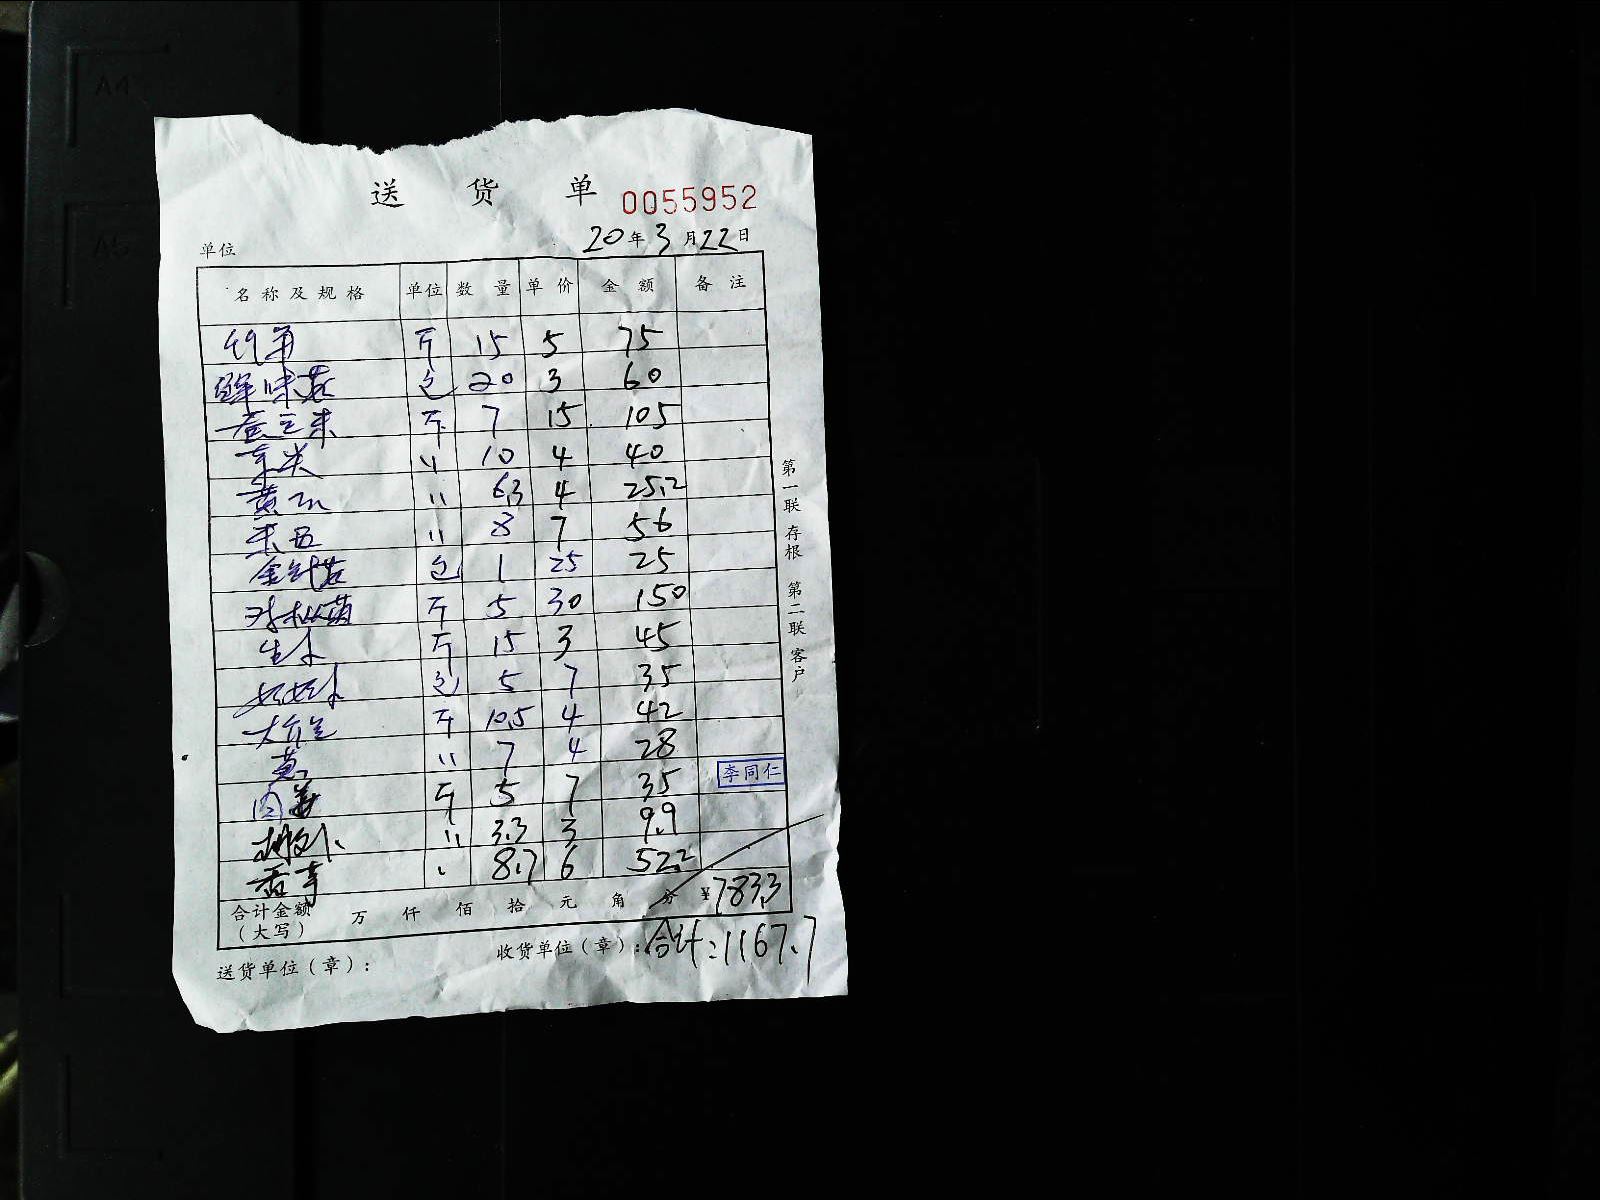 A4
A5
送 货 单 0055952
单位 20年3月22日
名称及规格 单位 数量 单价 金额 备注
斤 15 5 75
鲜味菇 包 20 3 60
斤 7 15 105
〃 10 4 40
黄瓜 〃 6.3 4 25.2
〃 8 7 56
金针菇 包 1 25 25
斤 5 30 150
生 斤 15 3 45
包 5 7 35
斤 10.5 4 42
〃 7 4 28
肉姜 斤 5 7 35
李同仁
〃 3.3 3 9.9
香 8.7 6 52.2
合计金额（大写） 万 仟 佰 拾 元 角 分 ¥783.3
收货单位（章）：合计：1167.7
送货单位（章）：
第一联 存根 第二联 客户